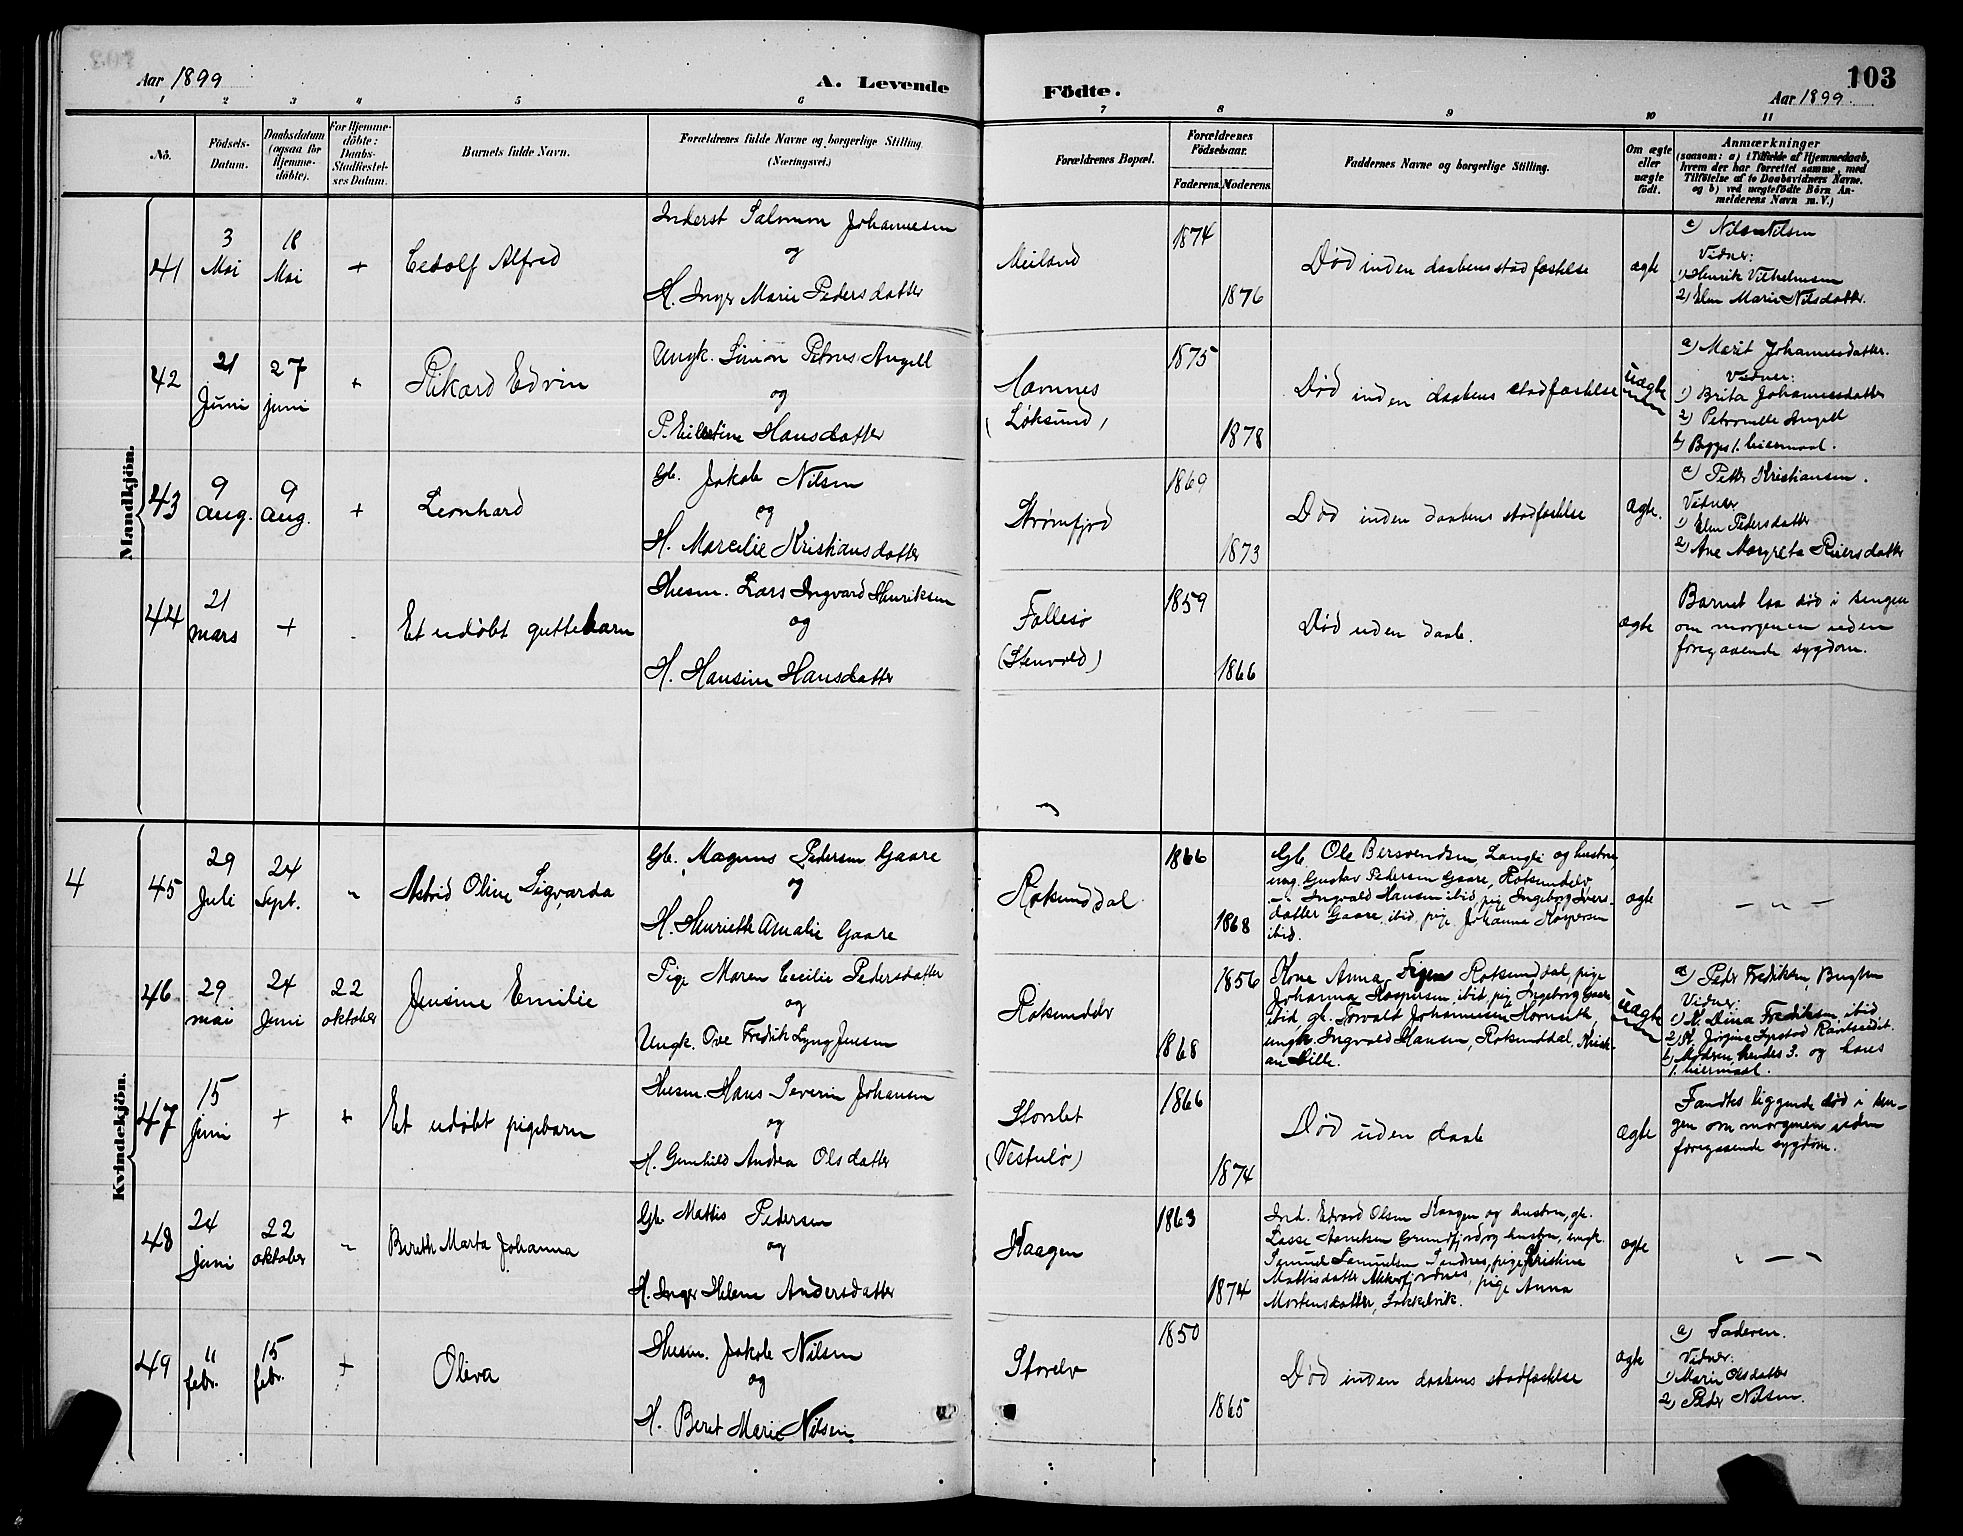 Aar 1899
A. Levende
Födte.
103
Aar 1899.
1 2 3 4 5 6 7 8 9 10 11
Nö.
Födsels-
Datum.
Daabsdatum
(ogsaa for
Hjemme-
döbte).
For Hjemme-
döbte:
Daabs-
Stadfæstel-
ses Datum.
Barnets fulde Navn.
Forældrenes fulde Navne og borgerlige Stilling
(Næringsvei.)
Forældrenes Bopæl.
Forældrenes
Födselsaar.
Faderens. Moderens.
Faddernes Navne og borgerlige Stilling.
Om ægte
eller
uægte
født.
Anmærkninger
(saasom: a) i Tilfælde af Hjemmedaab,
hvem der har forrettet samme, med
Tilföielse af to Daabsvidners Navne.
og b) ved uægtefödte Börn An-
melderens Navn m. V.)
Mandkjön.
41
3
Mai
18
Mai
+
Edolf Alfred
Inderst Salomon Johannesen
og
H. Inger Marie Pedersdatter
Meiland
1874
1876
Død inden daabens stadfæstelse
ægte
a) Nils Nilsen
Vidner:
1) Henrik Vilhelmsen
2) Elen Marie Nilsdatter.
42
21
Juni
27
juni
+
Rikard Edvin
Ungk. Simon Petrus Angell
og
P. Eilertine Hansdatter
Havnnes
(Løksund)
1875
1878
Død inden daabens stadfæstelse
uægte
a) Marit Johannesdatter.
Vidner:
1) Brita Johannesdatter
2) Petronelle Angell
b) Begges 1. leiermaal.
43
9
aug.
9
aug.
+
Leonhard
Gb. Jakob Nilsen
og
H. Marcelie Kristiansdatter
Strømfjord
1869
1873
Død inden daabens stadfæstelse
ægte.
a) Petter Kristiansen.
Vidner
1) Elen Pedersdatter
2) Ane Margreta Reiersdatter
44
21
mars
+
Et udøbt guttebarn
Husm. Lars Ingvard Henriksen
og
H. Hansine Hansdatter
Follesø
(Stenvold)
1859
1866
Død uden daab.
ægte
Barnet laa død i sengen
om morgenen uden
foregaaende sygdom.
Kvindekjön.
4
45
29
Juli
24
Sept.
"
Astrid Oline Sigvarda
Gb. Magnus Pedersen Gaare
og
H. Henriette Amalie Gaare
Rotsunddal
1866
1868
Gb. Ole Bersvendsen, Langli og hustru,
ung. Gustav Pedersen Gaare, Rotsundelv
— " — Ingvald Hansen ibid, pig Ingeborg Ivers-
datter Gaare, ibid, pige Johanna Kaspersen
ibid.
ægte
— " —
46
29
mai
24
Juni
22
oktober
Jensine Emilie
Pige Maren Cecilie Pedersdatter
og
Ungk. Ove Fredrik Lyng Jensen
Rotsundelv
1856
1868
Kone Anna Rotsunddal, pige
Johanna Kaspersen, ibid, pig Ingeborg Gaare
ibid, gb. Torvald Johannesen
ungk. Ingvald Hansen, Rotsunddal,
uægte
a) Peder Fredriksen,
Vidner:
1) K. Dina Fredriksen ibid
2) K. Jørgine
b) Modren, hendes 3. og hans
1. leiermaal.
47
15
Juni
+
+
Et udøbt pigebarn
Husm. Hans Severin Johansen
og
H. Gunhild Andrea Olsdatter
Storslet
1866
1874
Død uden daab
ægte
Fandtes liggende død i sen-
gen om morgenen uden
foregaaende sygdom.
48
24
Juni
22
oktober
"
Bereth Marta Johanna
Gb. Mattis Pedersen
og
H. Inger Helene Andersdatter
Haagen
1863
1874
Ind. Edvard Olsen Kaagen og hustru, gb.
Lasse Grundfjord og hustru, ungk.
Samuel Samuelsen Sandnes, pige Kristine
Mattisdatter Akkarfjordnes, pige Anna
Mortensdatter, Sokkelvik.
ægte
" — "
49
11
febr.
15
febr.
+
Oleva
Husm. Jakob Nilsen
og
H. Beret Marie Nilsen.
Storelv
1850
1865
Død inden daabens stadfæstelse
ægte
a) Faderen.
Vidner:
1) Marie Olsdatter
2) Peder Nilsen.